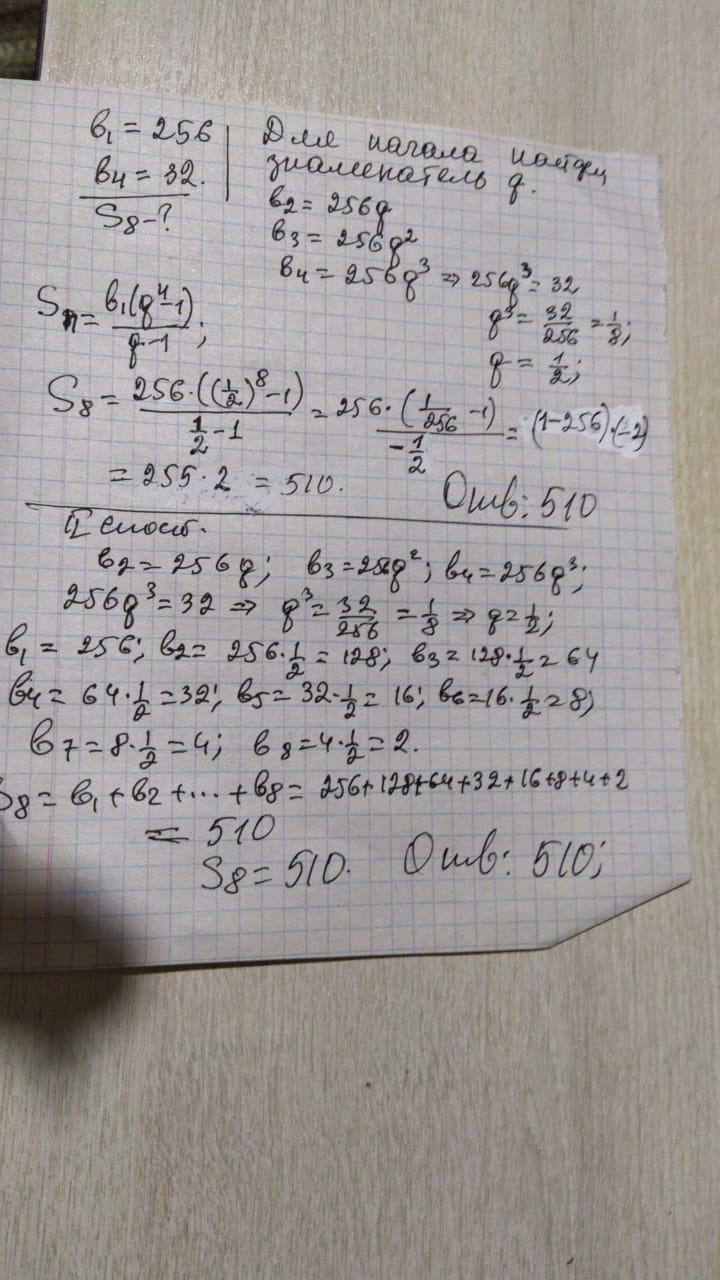 b₁ = 256
b₄ = 32.
S₈ - ?
Для начала найдем
знаменатель q.
b₂ = 256q
b₃ = 256q²
b₄ = 256q³ => 256q³ = 32
q³ = 32/256 = 1/8;
q = 1/2;
Sₙ = b₁(qⁿ-1)/(q-1);
S₈ = 256·((1/2)⁸-1)/(1/2-1) = 256·(1/256-1)/(-1/2) = (1-256)·(-2)
= 255·2 = 510.
Отв: 510
II способ.
b₂ = 256q; b₃ = 256q²; b₄ = 256q³;
256q³ = 32 => q³ = 32/256 = 1/8 => q = 1/2;
b₁ = 256; b₂ = 256·1/2 = 128; b₃ = 128·1/2 = 64
b₄ = 64·1/2 = 32; b₅ = 32·1/2 = 16; b₆ = 16·1/2 = 8;
b₇ = 8·1/2 = 4; b₈ = 4·1/2 = 2.
S₈ = b₁ + b₂ + ... + b₈ = 256+128+64+32+16+8+4+2
= 510
S₈ = 510. Отв: 510;